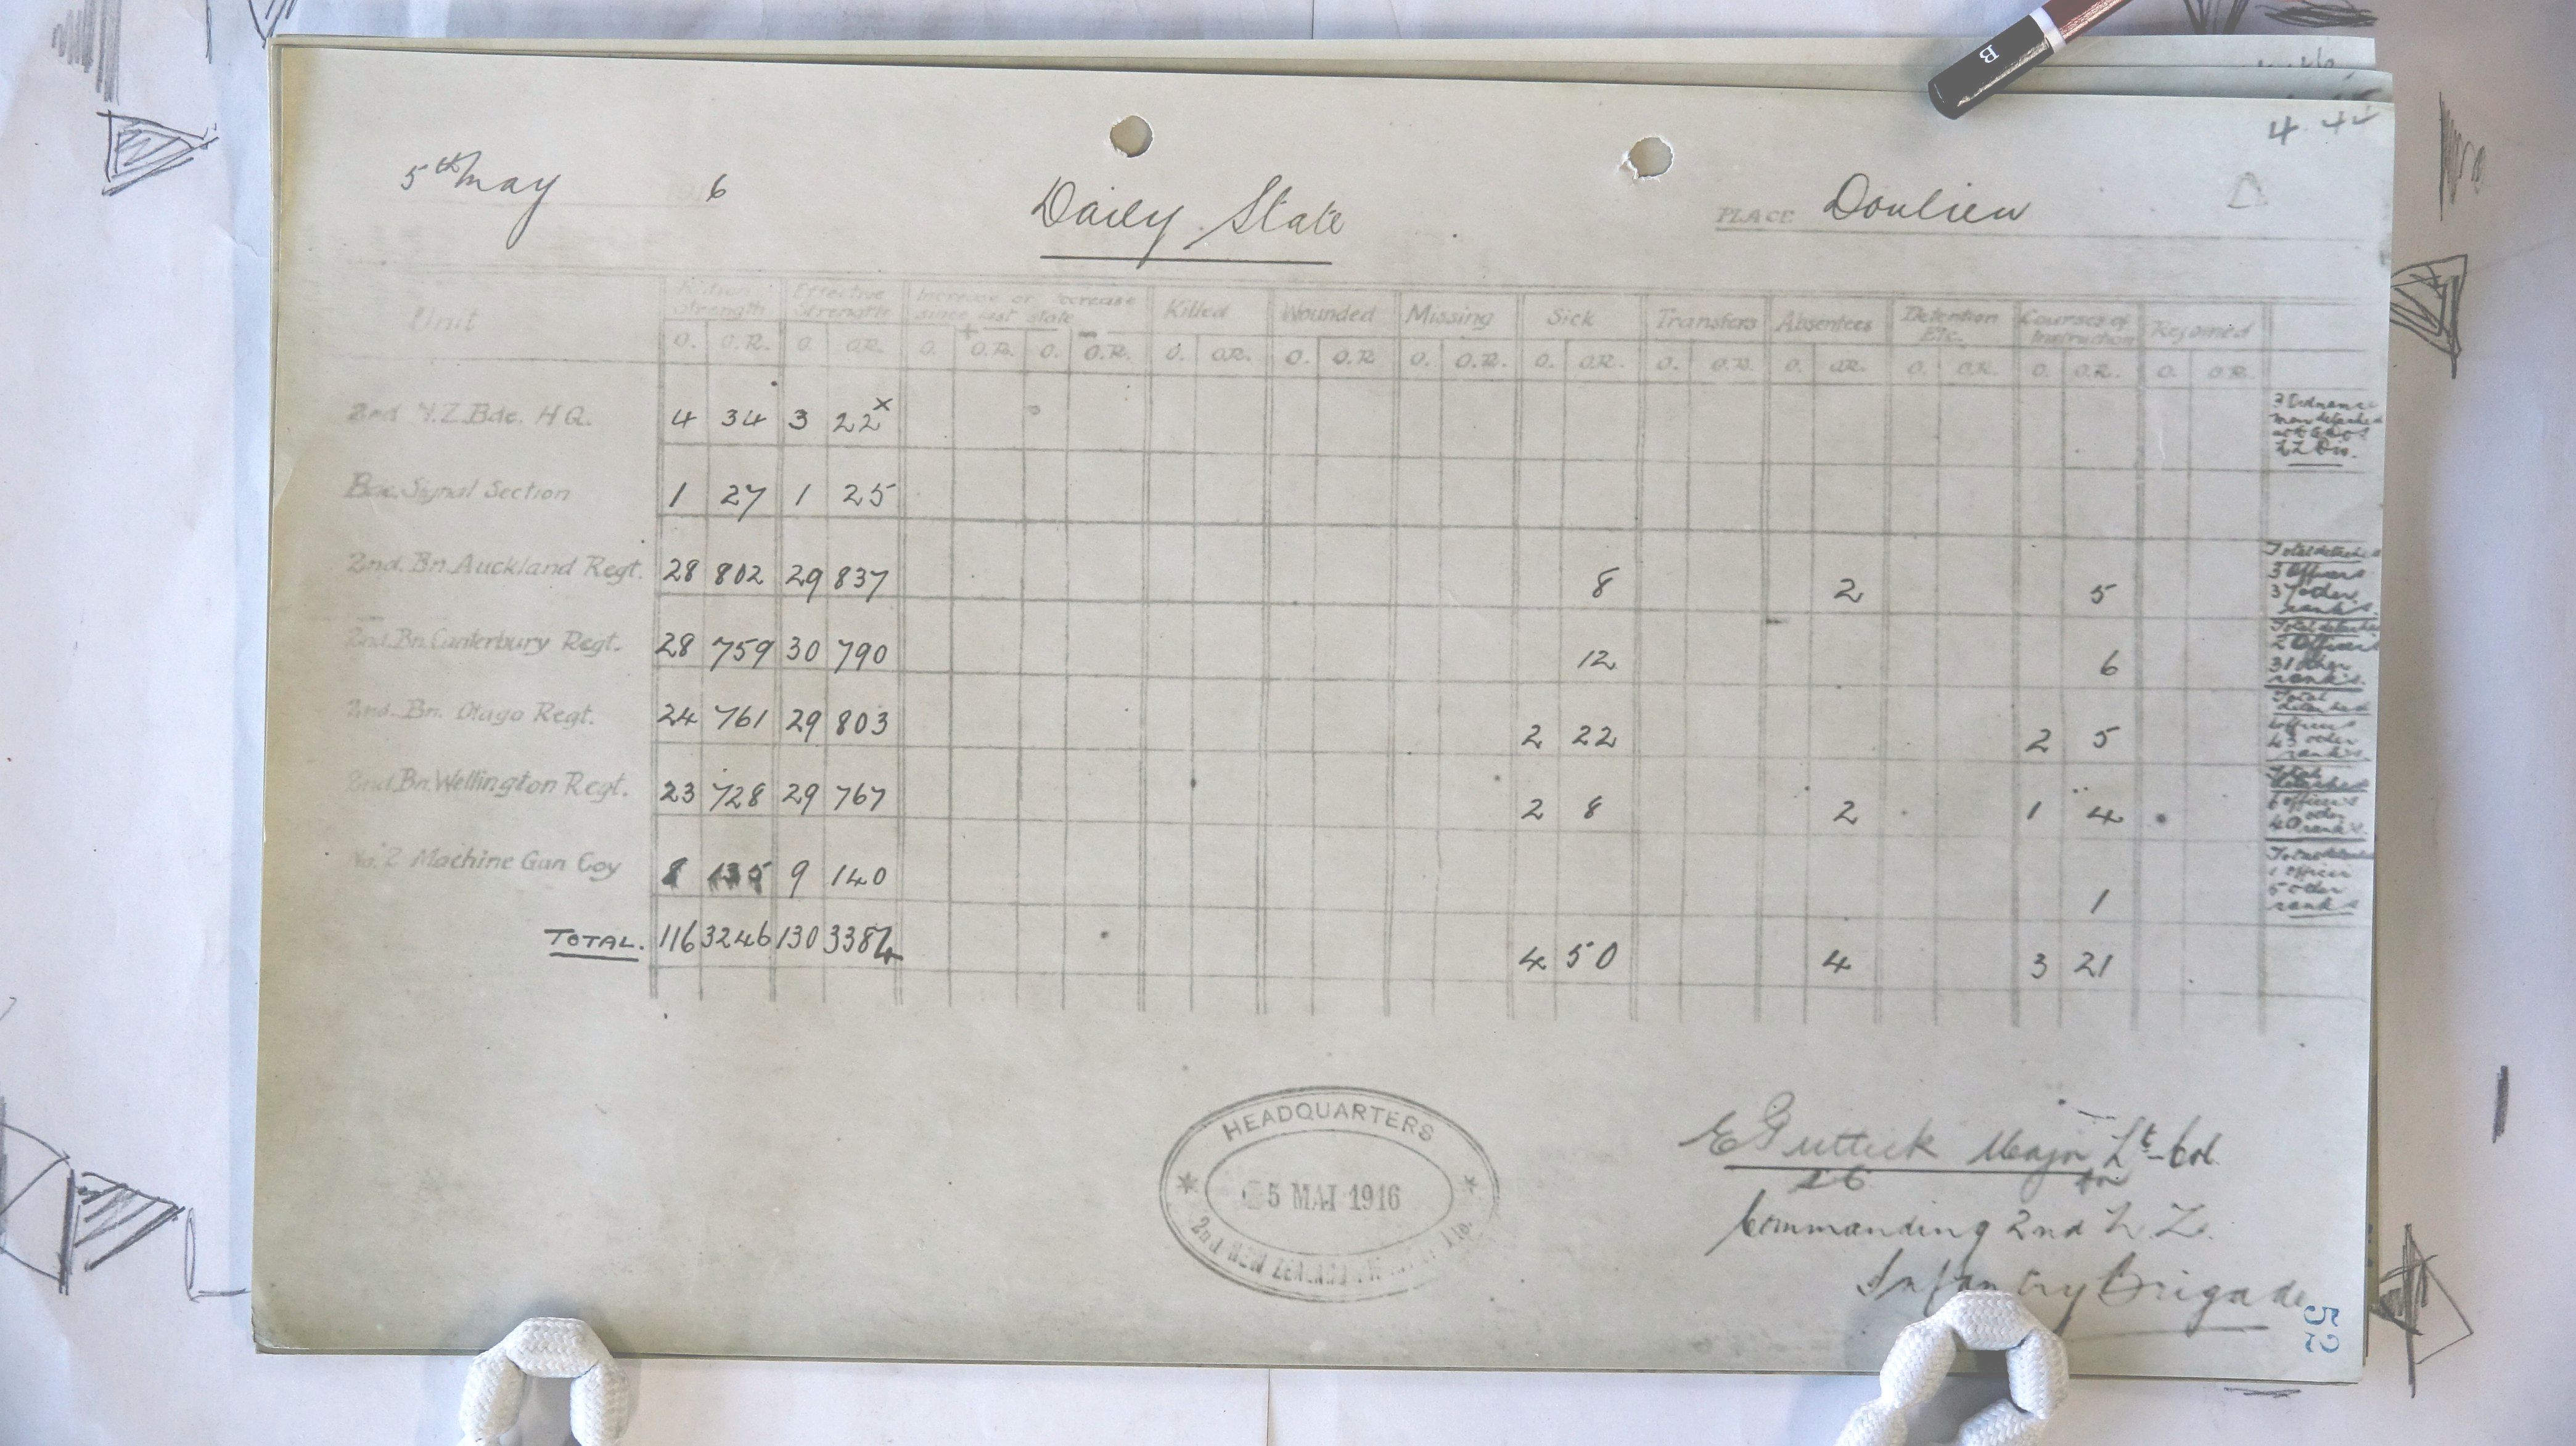 B
4 45
5th May 1916
Daily State
PLACE Doulieu
Unit
Ration Strength
Effective Strength
Increase or decrease since last state
+ -
Killed
Wounded
Missing
Sick
Transfers
Absentees
Detention Etc.
Courses of Instruction
Rejoined
O. O.R. O. O.R. O. O.R. O. O.R. O. O.R. O. O.R O. O.R. O. O.R. O. O.R. O. O.R. O. O.R. O. O.R. O. O.R.
2nd N.Z. Bde. H Q. 4 34 3 22x
3 Ordnance
men detached
N Z Div.
Bde. Signal Section 1 27 1 25
2nd. Bn. Auckland Regt. 28 802 29 837 8 2 5
Total detached
3 Officers
37 other
ranks.
2nd. Bn. Canterbury Regt. 28 759 30 790 12 6
Total detached
2 Officers
31 other
ranks.
2nd. Bn. Otago Regt. 24 761 29 803 2 22 2 5
Total
detached
officers
43 other
ranks.
2nd. Bn. Wellington Regt. 23 728 29 767 2 8 2 1 4
Total
detached
6 officers
40 other
ranks.
No. 2 Machine Gun Coy 8 135 9 140 1
Total detached
1 Officer
5 other
ranks
TOTAL. 116 3246 130 3384 4 50 4 3 21
HEADQUARTERS
5 MAI 1916
2nd NEW ZEALAND
E Puttick Major Lt-Col.
for
Commanding 2nd N. Z.
Infantry Brigade
52